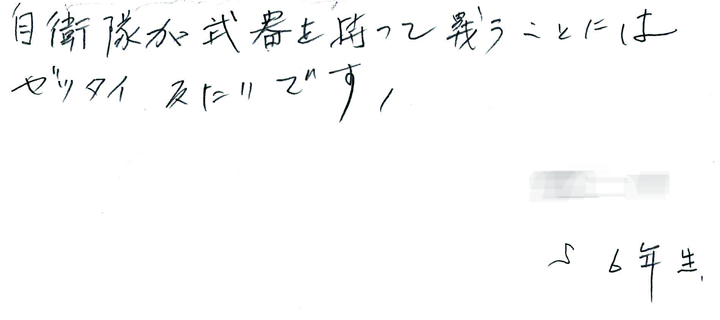 自衛隊が武器を持って戦うことには
ゼッタイ反たいです,
S 6年生.